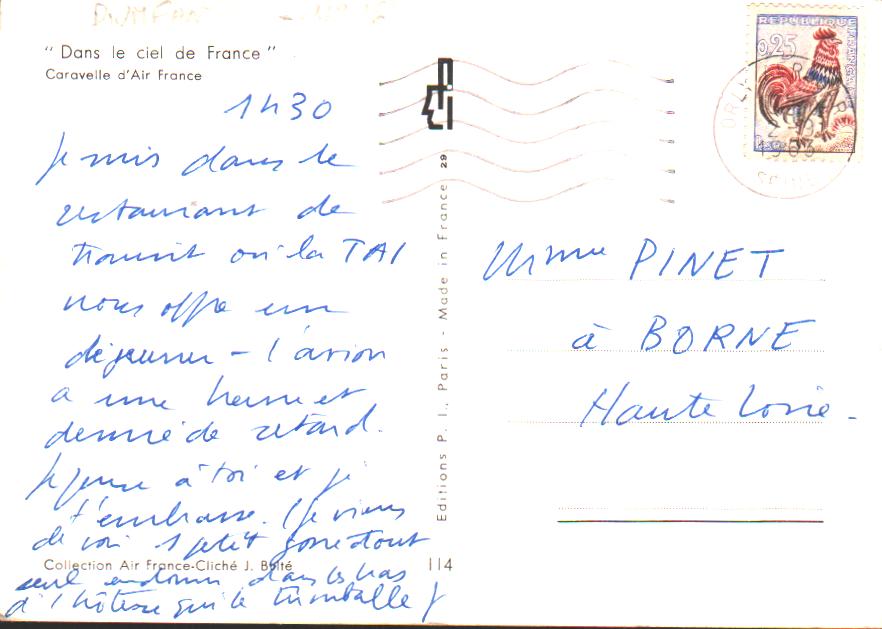 " Dans le ciel de France "
Caravelle d'Air France
1h30
Je suis dans le
restaurant de
transit où la TAI
nous offre un
déjeuner – l'avion
a une heure et
demie de retard.
Je pense à toi et je
t'embrasse. (Je viens
de voir 1 petit gosse tout
seul endormi dans les bras
d'1 hôtesse qui le trimballe)
Collection Air France-Cliché J. Belté
114
Editions P. I., Paris - Made in France 29
REPUBLIQUE FRANÇAISE
0,25
ORLY
1963
SEINE
Mme PINET
à BORNE
Haute Loire -